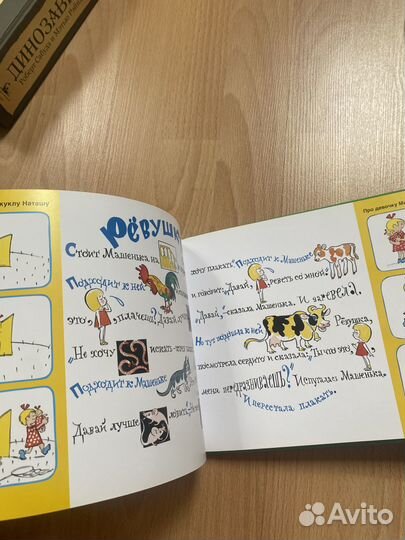 ДИНОЗАВ
Роберт Сабуда и Мэтью Рейнх
куклу Наташу
Рёвушк
Стоит Машенька на
Подходит к ней
это,
, плачешь? Давай, лучше
"Не хочу
искать - хочу
Подходит к Машеньке
Давай лучше
ловить
Про девочку Ма
хочу плакать." Подходит к Машеньке
и говорит: "Давай,
, реветь со мной?"
"Давай," - сказала Машенька. И заревела.
Но тут подошла к ней
Рёвушка,
посмотрела сердито и сказала: "Ты что это,
меня передразниваешь?" Испугалась Машенька.
И перестала плакать.
Avito